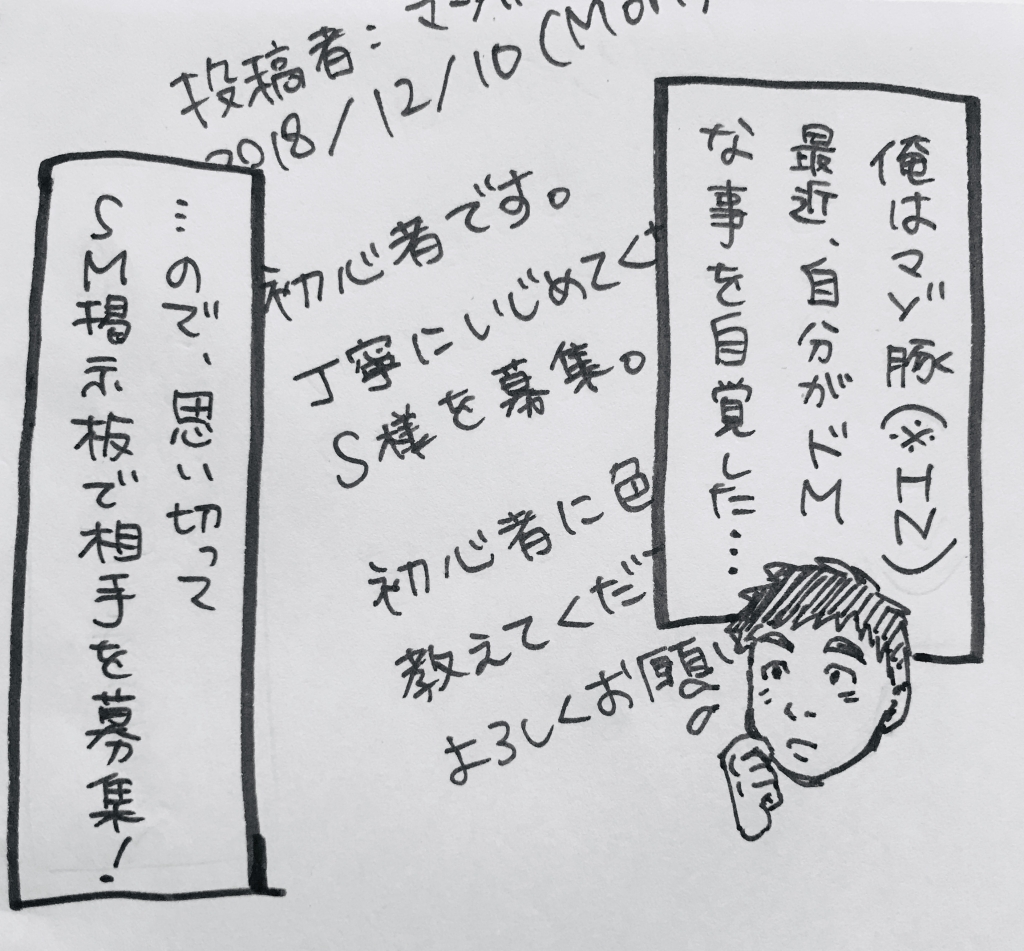 俺はマゾ豚(※HN)
最近、自分がドM
な事を自覚した…
投稿者:マゾ
2018/12/10(Mon)
初心者です。
丁寧にいじめてくだ
S様を募集。
初心者に色
教えてくだ
よろしくお願い
…ので、思い切って
SM掲示板で相手を募集!